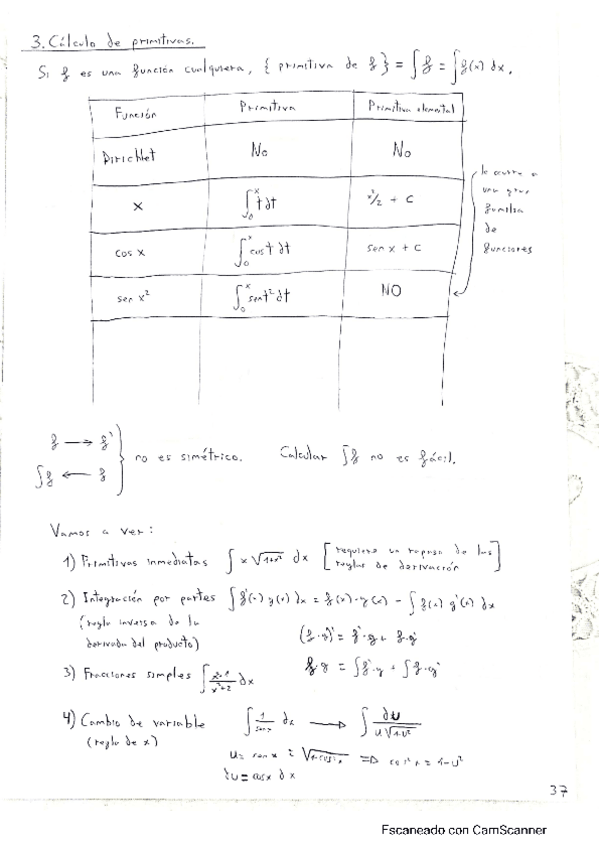 3. Cálculo de primitivas.
Si f es una función cualquiera, { primitiva de f } = ∫f = ∫f(x) dx.
Función Primitiva Primitiva elemental
Dirichlet No No
x ∫₀ˣ t dt x²/2 + C
cos x ∫₀ˣ cos t dt sen x + C
sen x² ∫₀ˣ sen t² dt NO
le ocurre a
una gran
familia
de
funciones
f → f'
∫f ← f
no es simétrico. Calcular ∫f no es fácil.
Vamos a ver:
1) Primitivas inmediatas ∫ x √(1+x²) dx [requiere un repaso de las
reglas de derivación]
2) Integración por partes ∫ f'(x) g(x) dx = f(x)·g(x) - ∫ f(x) g'(x) dx
(regla inversa de la
derivada del producto)
(f·g)' = f'·g + f·g'
f·g = ∫f'·g + ∫f·g'
3) Fracciones simples dx
4) Cambio de variable ∫ 1/sen x dx → ∫ du/(u√(1-u²))
(regla de x)
du = cos x dx
37
Escaneado con CamScanner